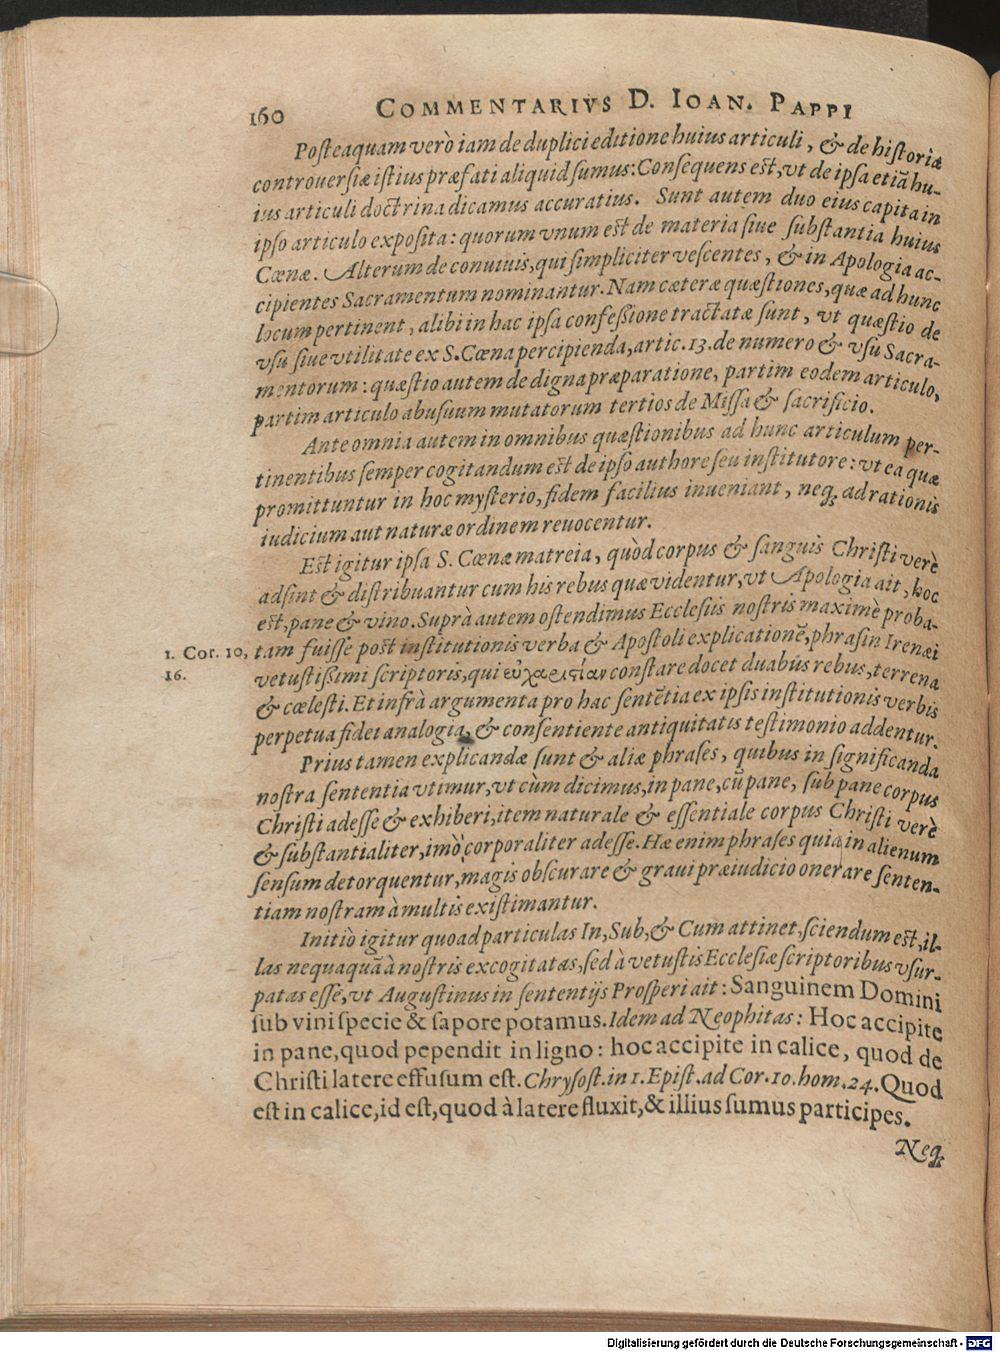 160 COMMENTARIVS D. IOAN. PAPPI
Posteaquam verò iam de duplici editione huius articuli, & de historia
controuersiæ istius præfati aliquid sumus: Consequens est, vt de ipsa etiā hu-
ius articuli doctrina dicamus accuratius. Sunt autem duo eius capita in
ipso articulo exposita: quorum vnum est de materia siue substantia huius
Cœnæ. Alterum de conuiuis, qui simpliciter vescentes, & in Apologia ac-
cipientes Sacramentum nominantur. Nam cæteræ quæstiones, quæ ad hunc
locum pertinent, alibi in hac ipsa confeßione tractatæ sunt, vt quæstio de
vsu siue vtilitate ex S. Cœna percipienda, artic. 13. de numero & vsu Sacra-
mentorum: quæstio autem de digna præparatione, partim eodem articulo,
partim articulo abusuum mutatorum tertios de Missa & sacrificio.
Ante omnia autem in omnibus quæstionibus ad hunc articulum per-
tinentibus semper cogitandum est de ipso authore seu institutore: vt ea quæ
promittuntur in hoc mysterio, fidem facilius inueniant, neq; ad rationis
iudicium aut naturæ ordinem reuocentur.
Est igitur ipsa S. Cœnæ matreia, quòd corpus & sanguis Christi verè
adsint & distribuantur cum his rebus quæ videntur, vt Apologia ait, hoc
est, pane & vino. Suprà autem ostendimus Ecclesiis nostris maximè proba-
1. Cor. 10, tam fuisse post institutionis verba & Apostoli explicationē, phrasin Irenæi
16. vetustißimi scriptoris, qui εὐχαριστίαν constare docet duabus rebus, terrena
& cœlesti. Et infrà argumenta pro hac sentētia ex ipsis institutionis verbis
perpetua fidei analogia, & consentiente antiquitatis testimonio addentur.
Prius tamen explicandæ sunt & aliæ phrases, quibus in significanda
nostra sententia vtimur, vt cùm dicimus, in pane, cū pane, sub pane corpus
Christi adesse & exhiberi, item naturale & essentiale corpus Christi verè
& substantialiter, imò corporaliter adesse. Hæ enim phrases quia in alienum
sensum detorquentur, magis obscurare & graui præiudicio onerare senten-
tiam nostram à multis existimantur.
Initiò igitur quoad particulas In, Sub, & Cum attinet, sciendum est, il-
las nequaquā à nostris excogitatas, sed à vetustis Ecclesiæ scriptoribus vsur-
patas esse, vt Augustinus in sententijs Prosperi ait: Sanguinem Domini
sub vini specie & sapore potamus. Idem ad Neophitas: Hoc accipite
in pane, quod pependit in ligno: hoc accipite in calice, quod de
Christi latere effusum est. Chrysost. in 1. Epist. ad Cor. 10. hom. 24. Quod
est in calice, id est, quod à latere fluxit, & illius sumus participes.
Neq;
Digitalisierung gefördert durch die Deutsche Forschungsgemeinschaft - DFG